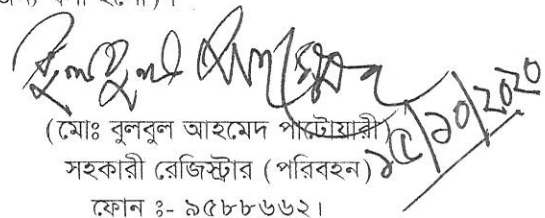 বুলবুল আহমেদ
১৫/১০/২০২০
(মোঃ বুলবুল আহমেদ পাটোয়ারী)
সহকারী রেজিস্ট্রার (পরিবহন)
ফোন ঃ- ৯৫৮৮৬৬২।